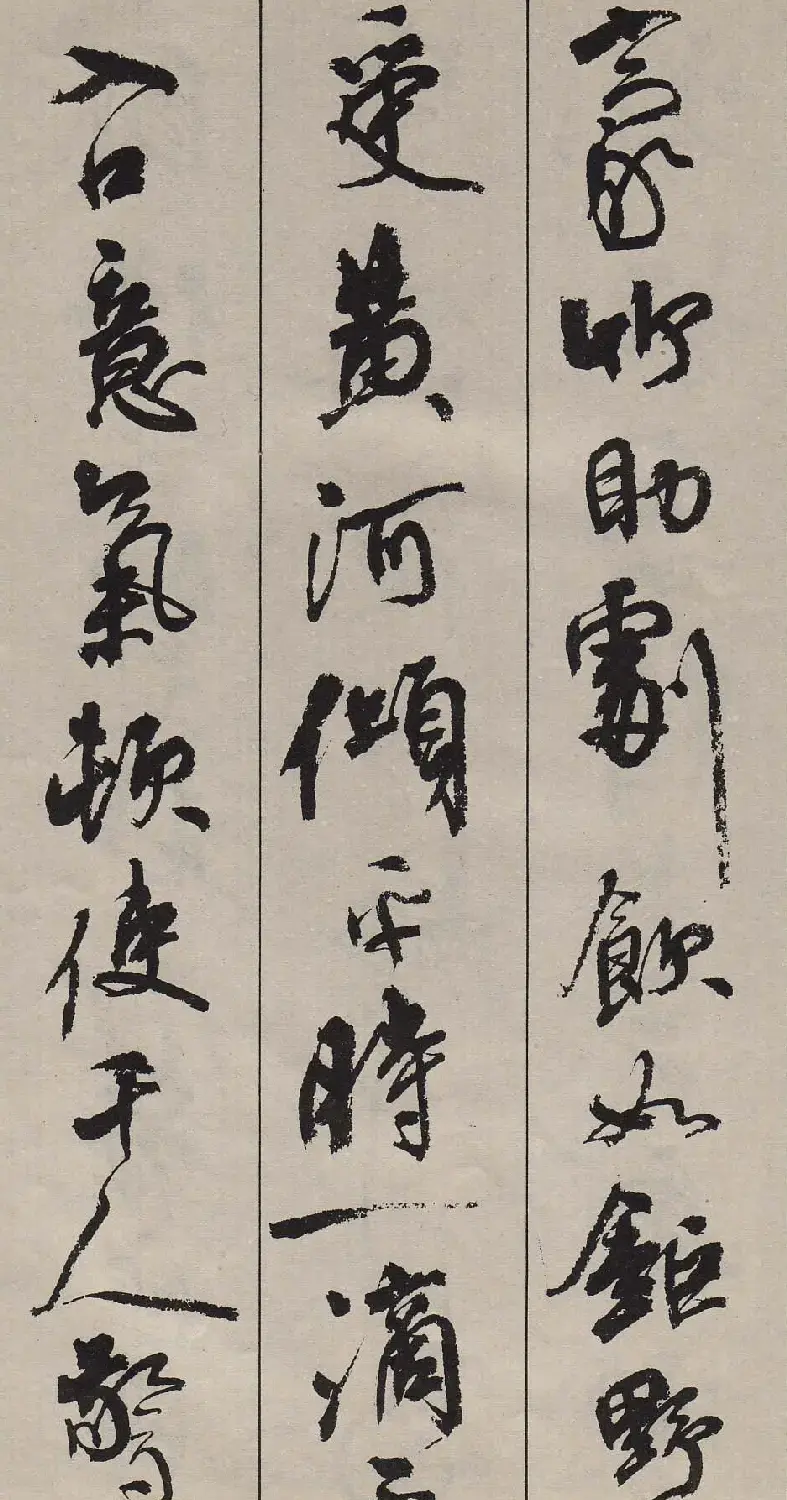 豪竹助劇飲如鉅野
受黃河傾平時一滴不
入口意氣頓使千人驚